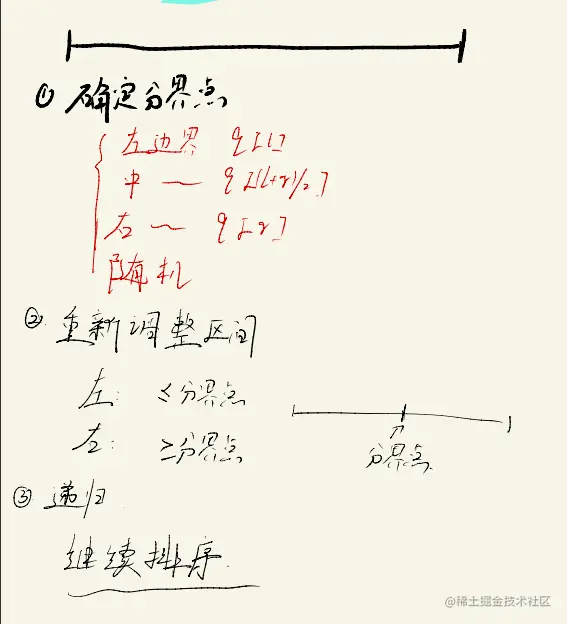 ① 确定分界点
左边界 q[l]
中 — q[(l+r)/2]
右 ~ q[r]
随机
② 重新调整区间
左: ≤分界点
右: ≥分界点
分界点
③ 递归
继续排序
@稀土掘金技术社区